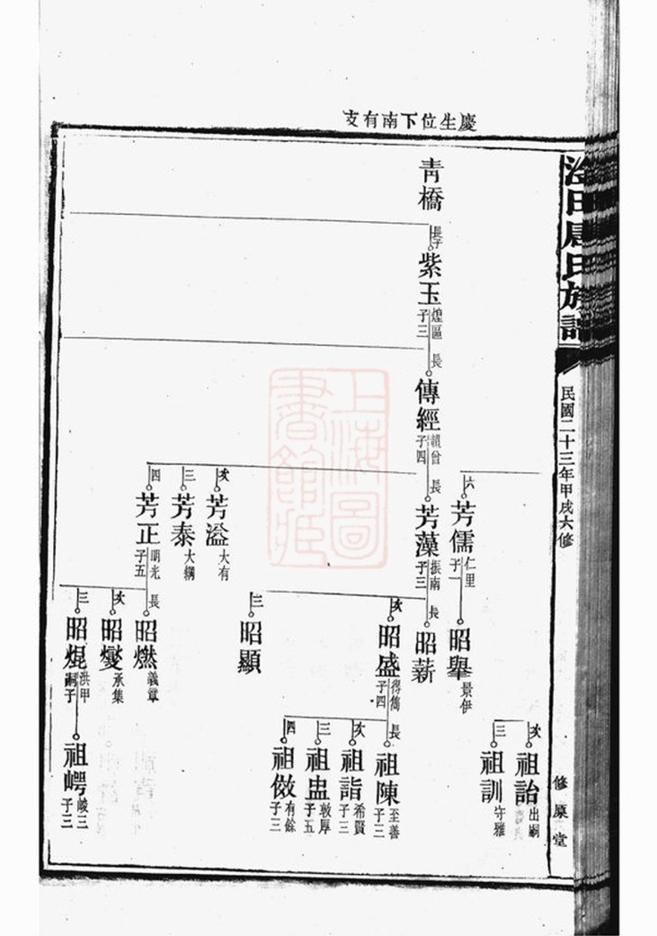 慶生位下南有支
周氏族譜
民國二十三年甲戌六修
修原堂
青橋
長子
紫玉
煌區
子三
長
傳經
子四
長
六
芳儒
仁里
子一
芳藻
振南
子三
次
芳溢
大有
三
芳泰
大綱
四
芳正
明光
子五
昭舉
景伊
長
昭薪
次
昭盛
得雋
子四
三
昭顯
長
昭燃
義章
次
昭燮
承集
三
昭焜
洪甲
嗣子
次
祖詒
出嗣
三
祖訓
守雅
長
祖陳
至善
子三
次
祖詣
希賢
子三
三
祖盅
敦厚
子五
四
祖傚
有餘
子三
祖崿
峻三
子三
上海圖書館藏